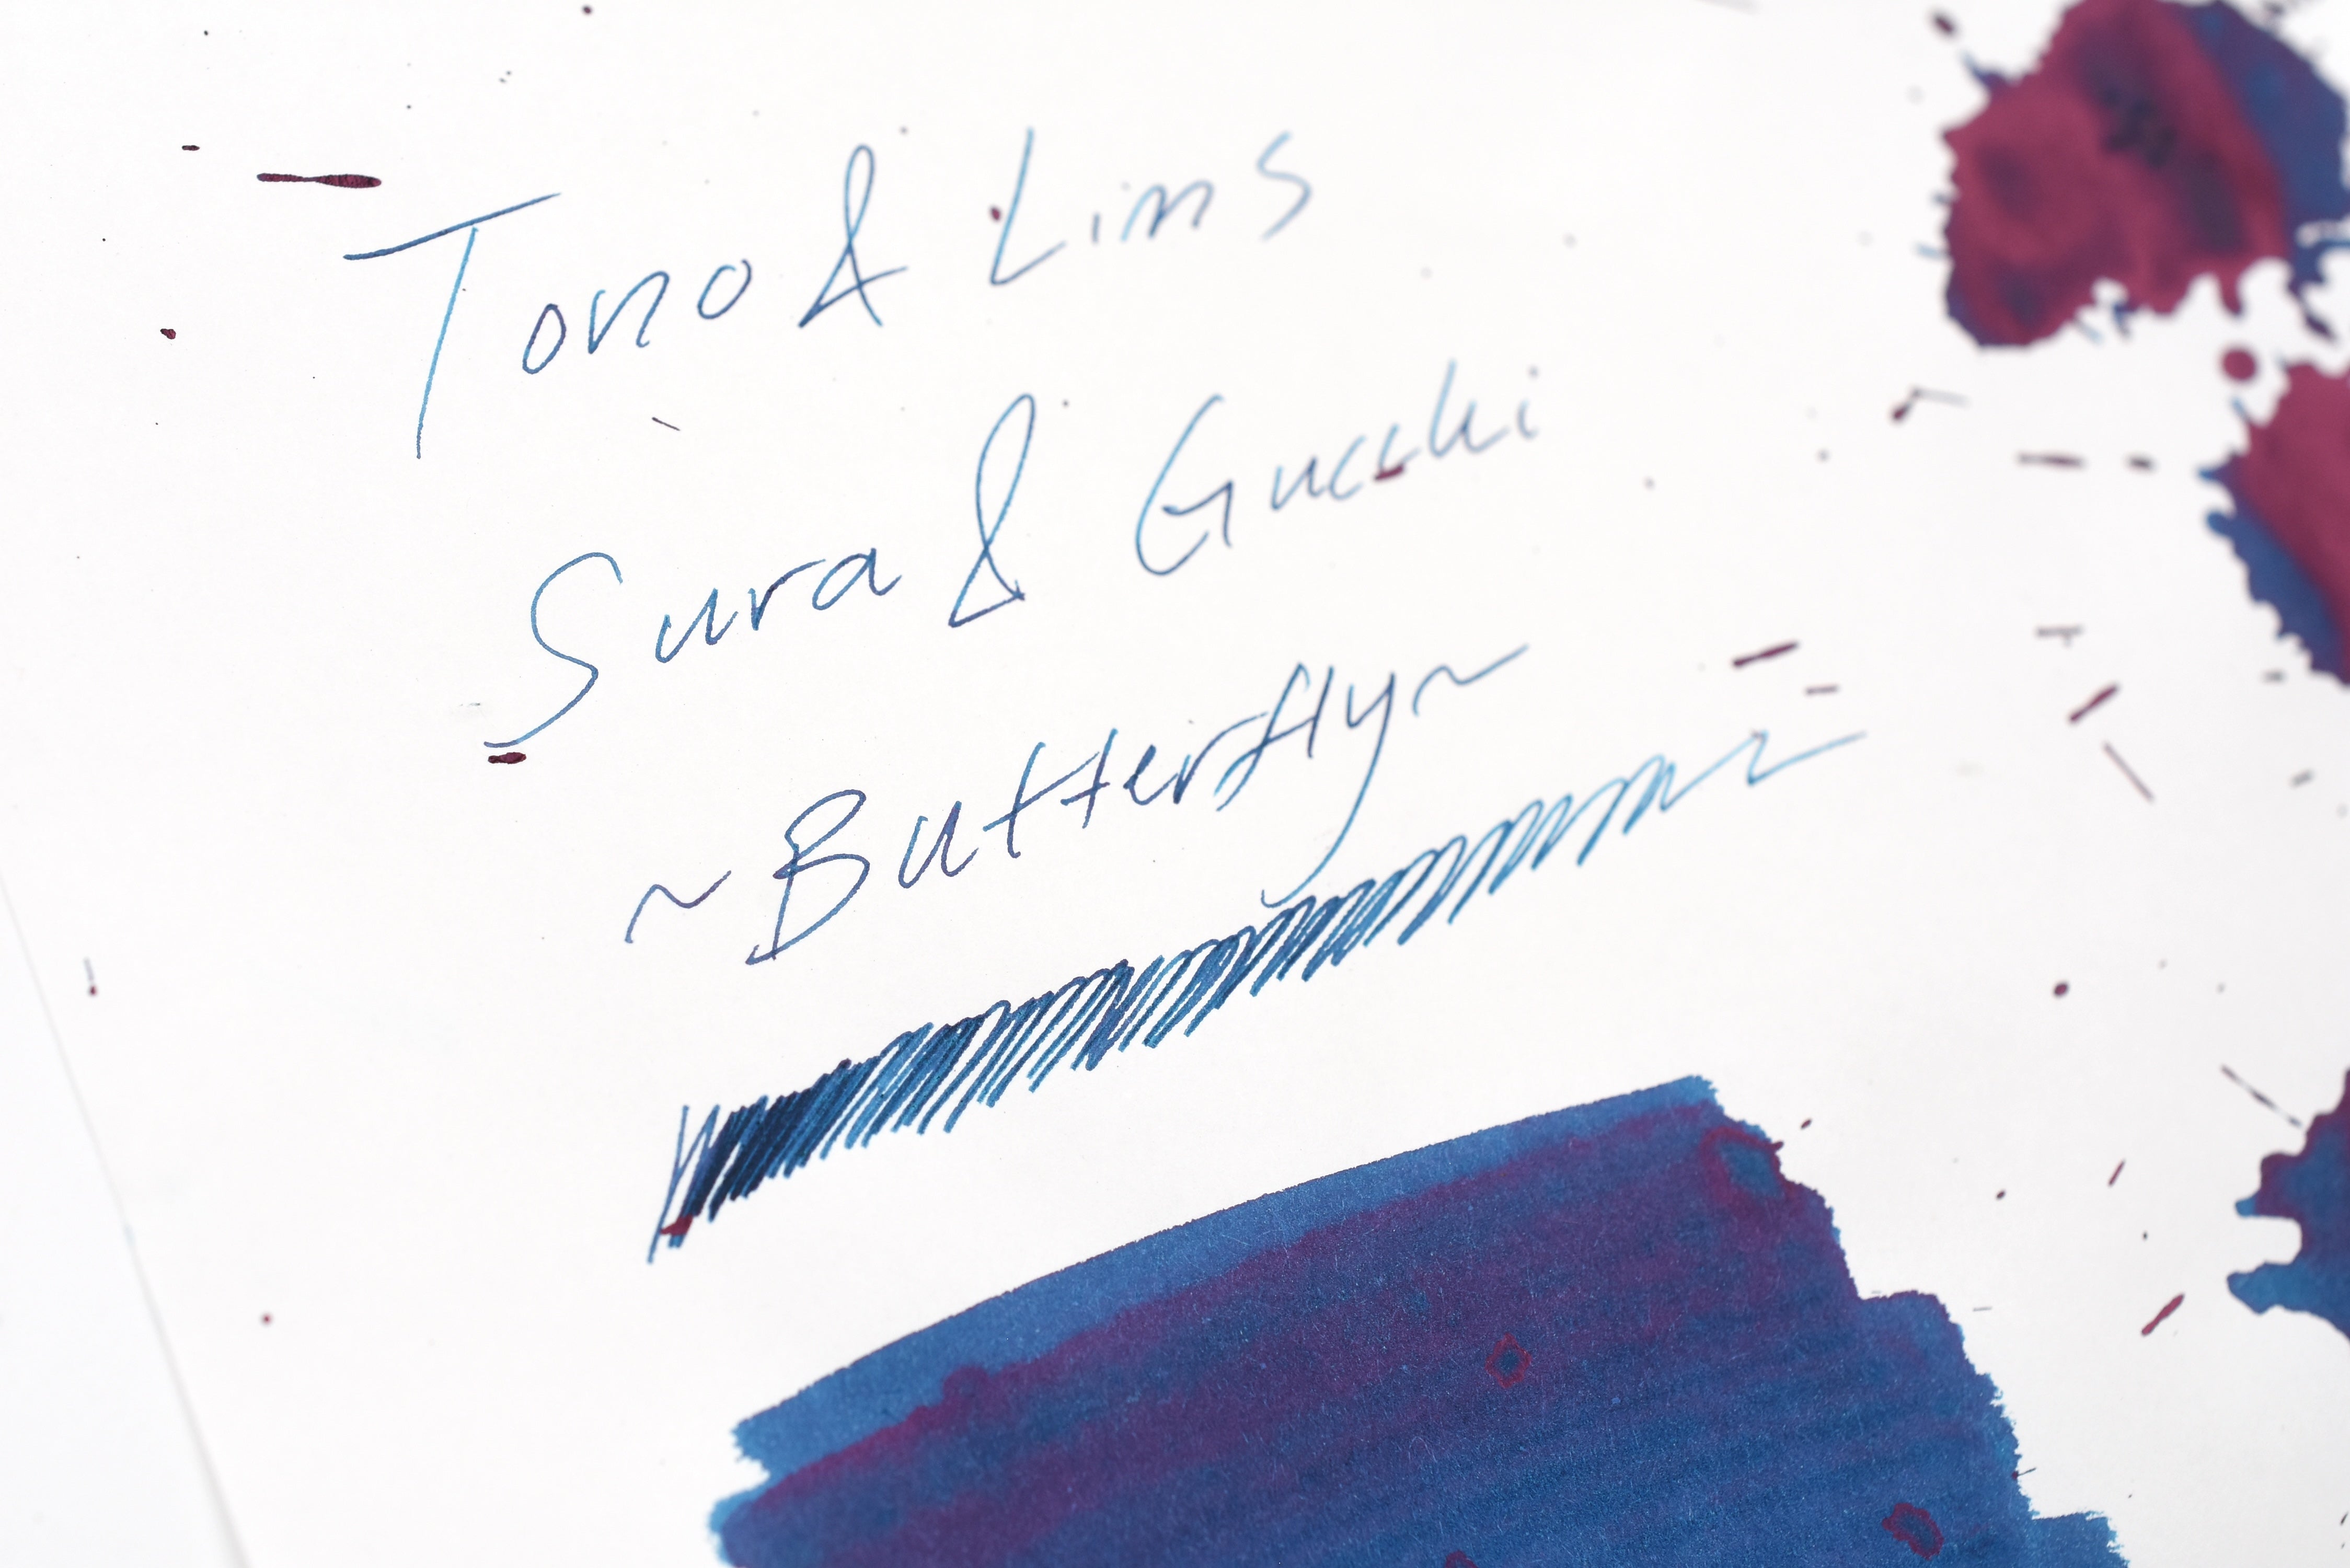 Tono & Lims
Sura & Gucchi
~Butterfly~